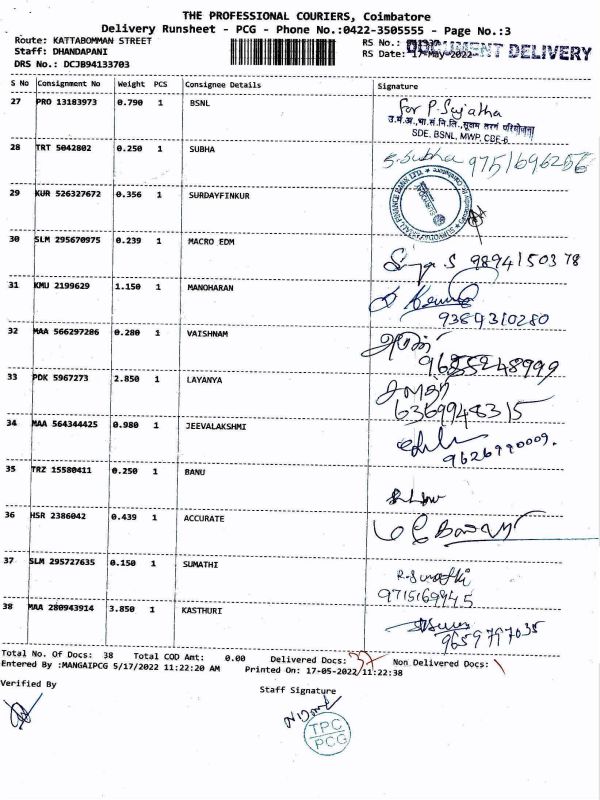 THE PROFESSIONAL COURIERS, Coimbatore
Delivery Runsheet - PCG - Phone No.:0422-3505555 - Page No.:3
Route: KATTABOMMAN STREET
Staff: DHANDAPANI
DRS No.: DCJB94133703
RS No.:
RS Date: 17-May-2022
DOCUMENT DELIVERY
S No Consignment No Weight PCS Consignee Details Signature
27 PRO 13183973 0.790 1 BSNL
for P. Sujatha
उ.म.अ.,भा.सं.नि.लि.,सूक्ष्म तरंग परियोजना
SDE, BSNL, MWP, CBE-6
28 TRT 5042802 0.250 1 SUBHA S. Subha 9751696256
29 KUR 526327672 0.356 1 SURDAYFINKUR
30 SLM 295670975 0.239 1 MACRO EDM S 9894150378
31 KMU 2199629 1.150 1 MANOHARAN
9384310280
32 MAA 566297286 0.280 1 VAISHNAM
9685248999
33 PDK 5967273 2.850 1 LAYANYA
6369948315
34 MAA 564344425 0.980 1 JEEVALAKSHMI
9626990009.
35 TRZ 15580411 0.250 1 BANU
36 HSR 2386042 0.439 1 ACCURATE
37 SLM 295727635 0.150 1 SUMATHI R. Sumathi
9715169945
38 MAA 280943914 3.850 1 KASTHURI
9659797035
Total No. Of Docs: 38 Total COD Amt: 0.00 Delivered Docs: 37 Non Delivered Docs: 1
Entered By :MANGAIPCG 5/17/2022 11:22:20 AM Printed On: 17-05-2022 11:22:38
Verified By
Staff Signature
TPC
PCG